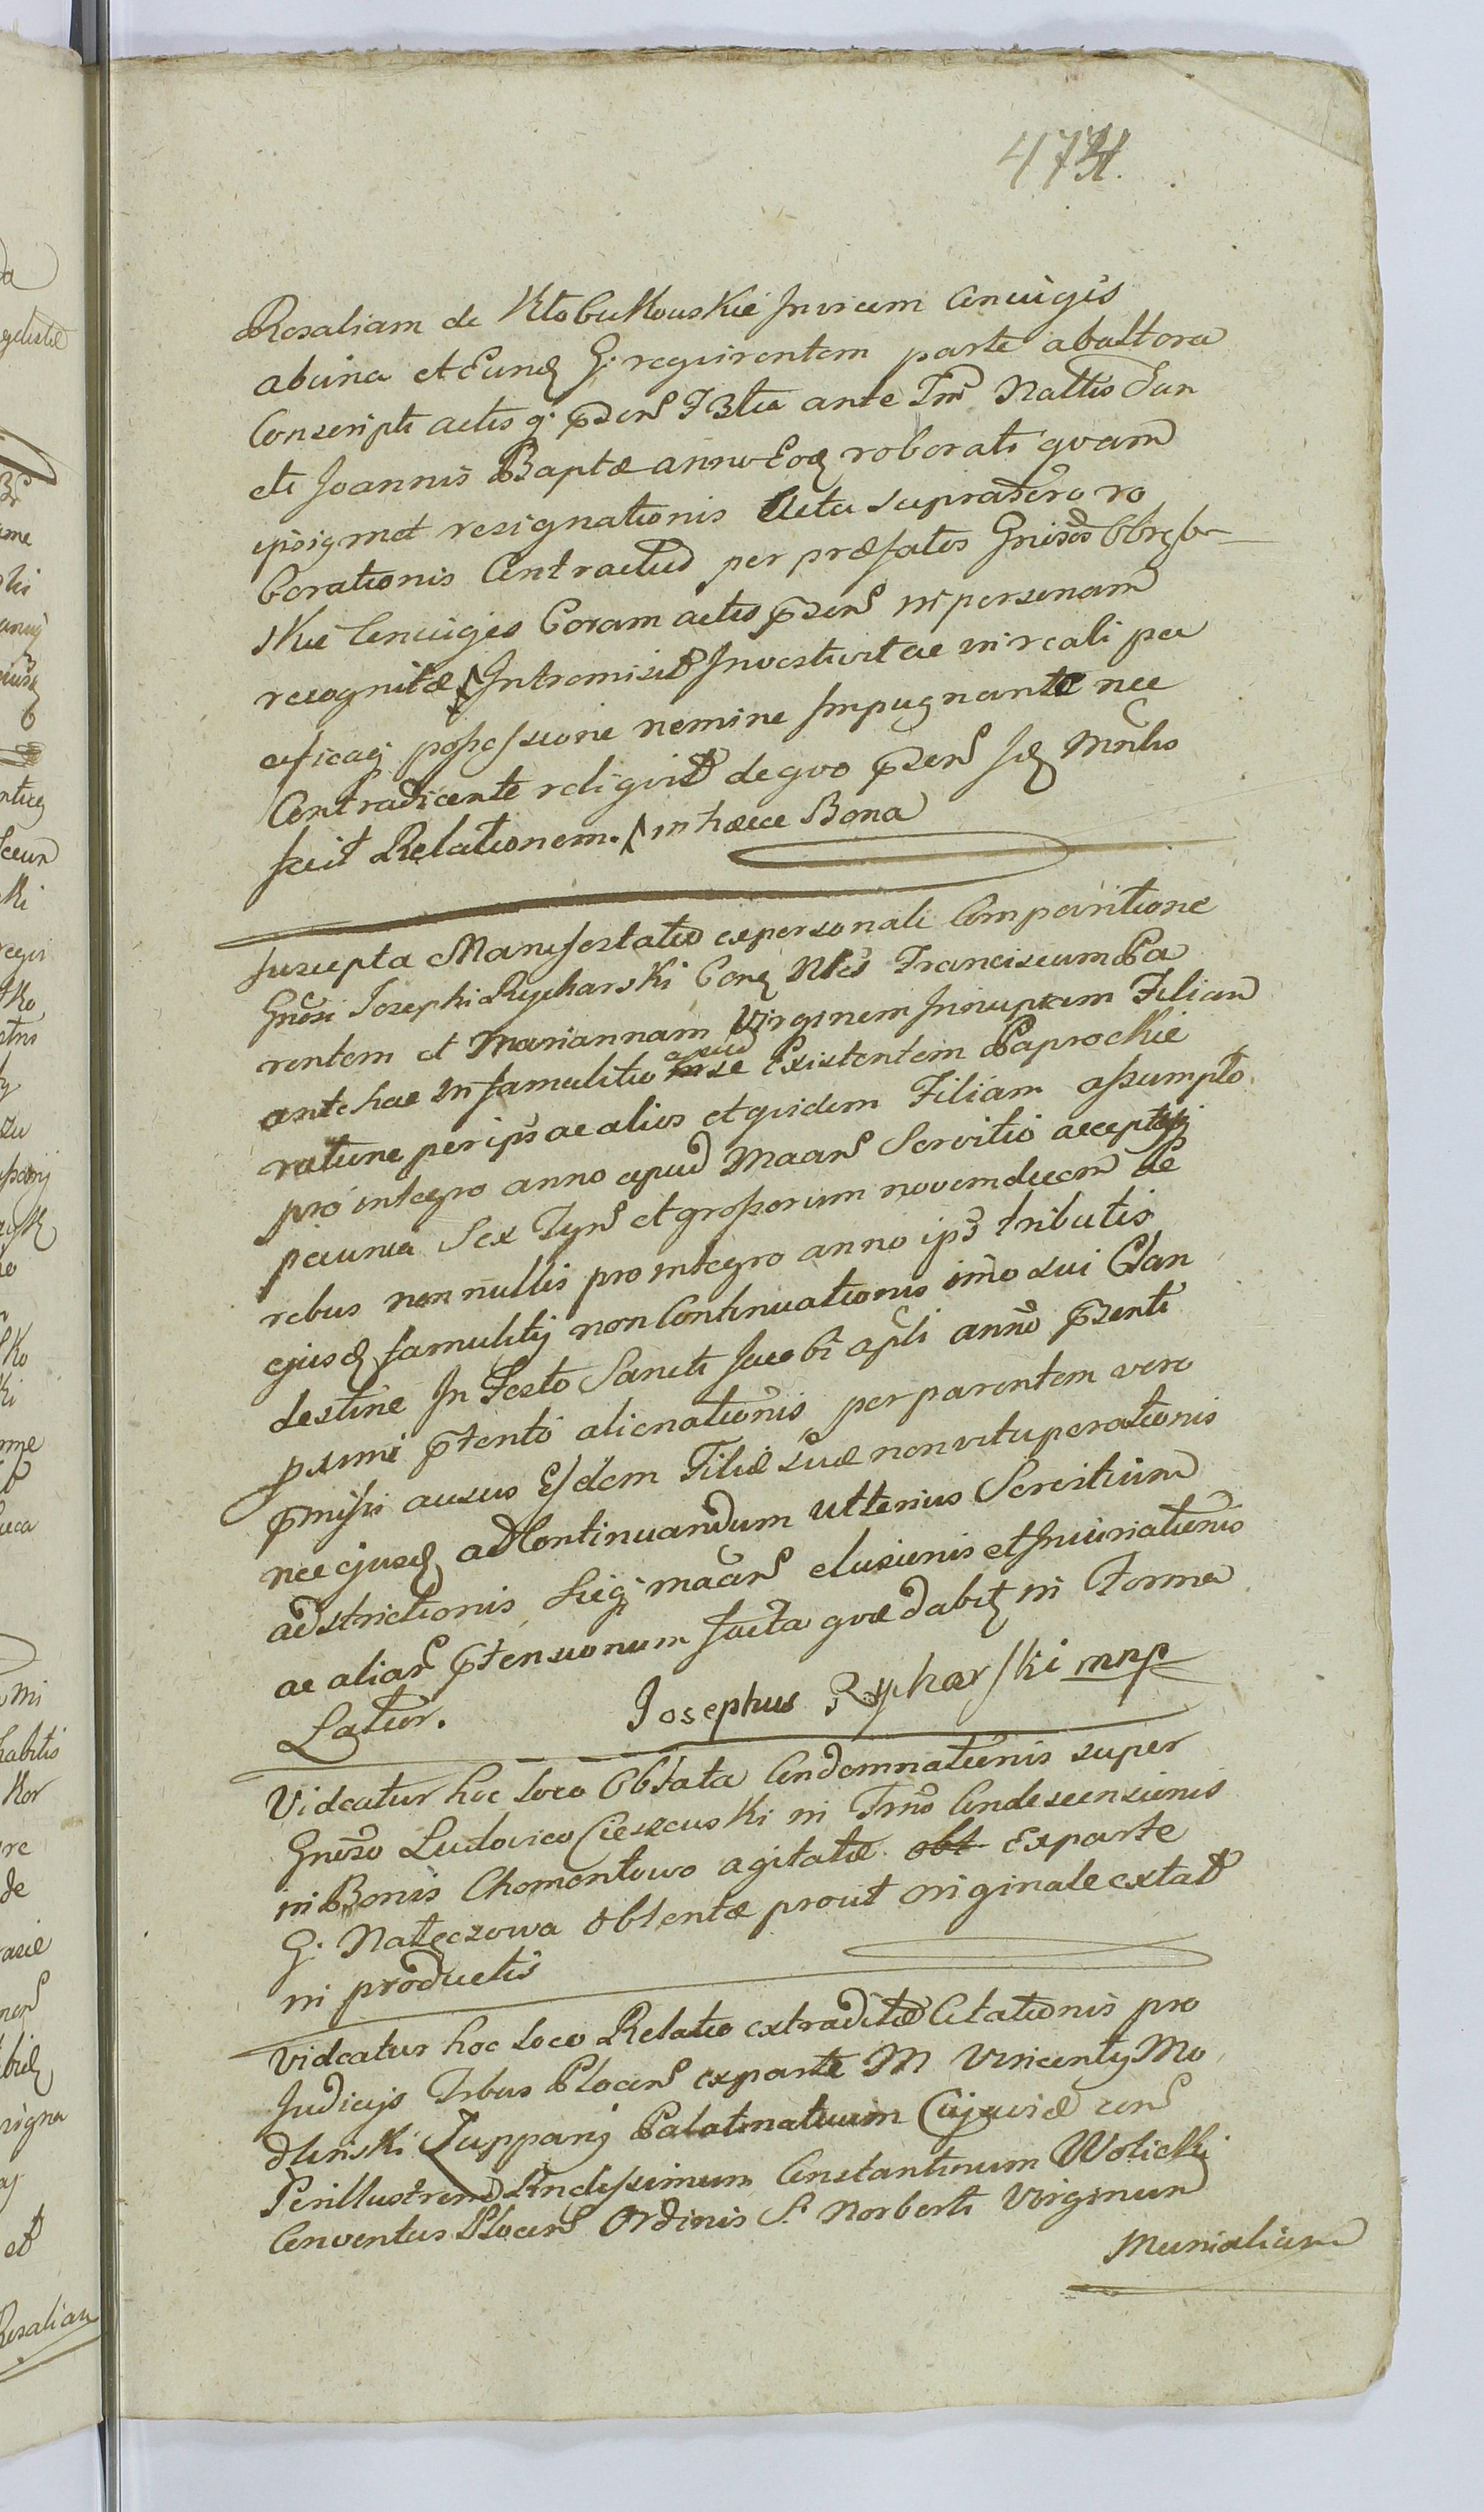 474.
Rosaliam de Kłobukowskie Invicem Coniuges
ab una et Eund G. requirentem parte ab altera
Conscripti actis q. pzens ante Tm Nattis San
cti Joannis Baptæ anno Eod roborati quam
ipsiqmet resignationis Acta supra vero ro
borationis Contractus per præfatos Gnisos
skie Coniuges Coram actis pzens in personam
recognitæ Intromisit Investivit ac in reali pa
cificaq possessione nemine Impugnante nec
Contradicente reliquit de quo pzens Id Mnlis
fecit Relationem. in hæcce Bona
Suscepta Manifestatio ex personali Comparitione
Gnosi Josephi Rycharski Cora Nles Franciscum Pa
rentem et Mariannam Virginem Innuptam Filiam
ante hac in famulitio apud se Existentem Paprockie
ratione per ips ac alios et quidem Filiam assumpto
pro integro anno apud Maans Servitio accepta
pecunia Sex Tyns et grossorum novemdecem de
rebus non nullis pro integro anno ips tributis
ejusd famulitij non Continuationis imo sui Clan
destine In Festo Sancti Jacobi apli anno pzenti
pxime ptento alienationis per parentem vero
pmissi ausus Ejdem Filiæ suæ non vituperationis
nec ejusd ad Continuandum ulterius Servitium
adstrictionis Sicq maans elusionis et Iniuriationis
ac aliar ptensionum facta quæ dabit in Forma
Latior.
Josephus Rycharski mnp
Videatur hoc loco Oblata Condemnationis super
Gnoso Ludovico Cieszewski in Tmno Condescensionis
in Bonis Chomentowo agitatæ obt Ex parte
G. Nałęczowa Obtentæ prout originale extat
in productis
Videatur hoc loco Relatio extraditæ Citationis pro
Judicijs Trbus Plocens ex parte M Vincentij Mo
dlinski Juppanj Palatinatuum Cujaviæ cons
Perillustrem Rndissimum Constantinum Wolicki
Conventus Plocens Ordinis S. Norberti Virginum
Munialium